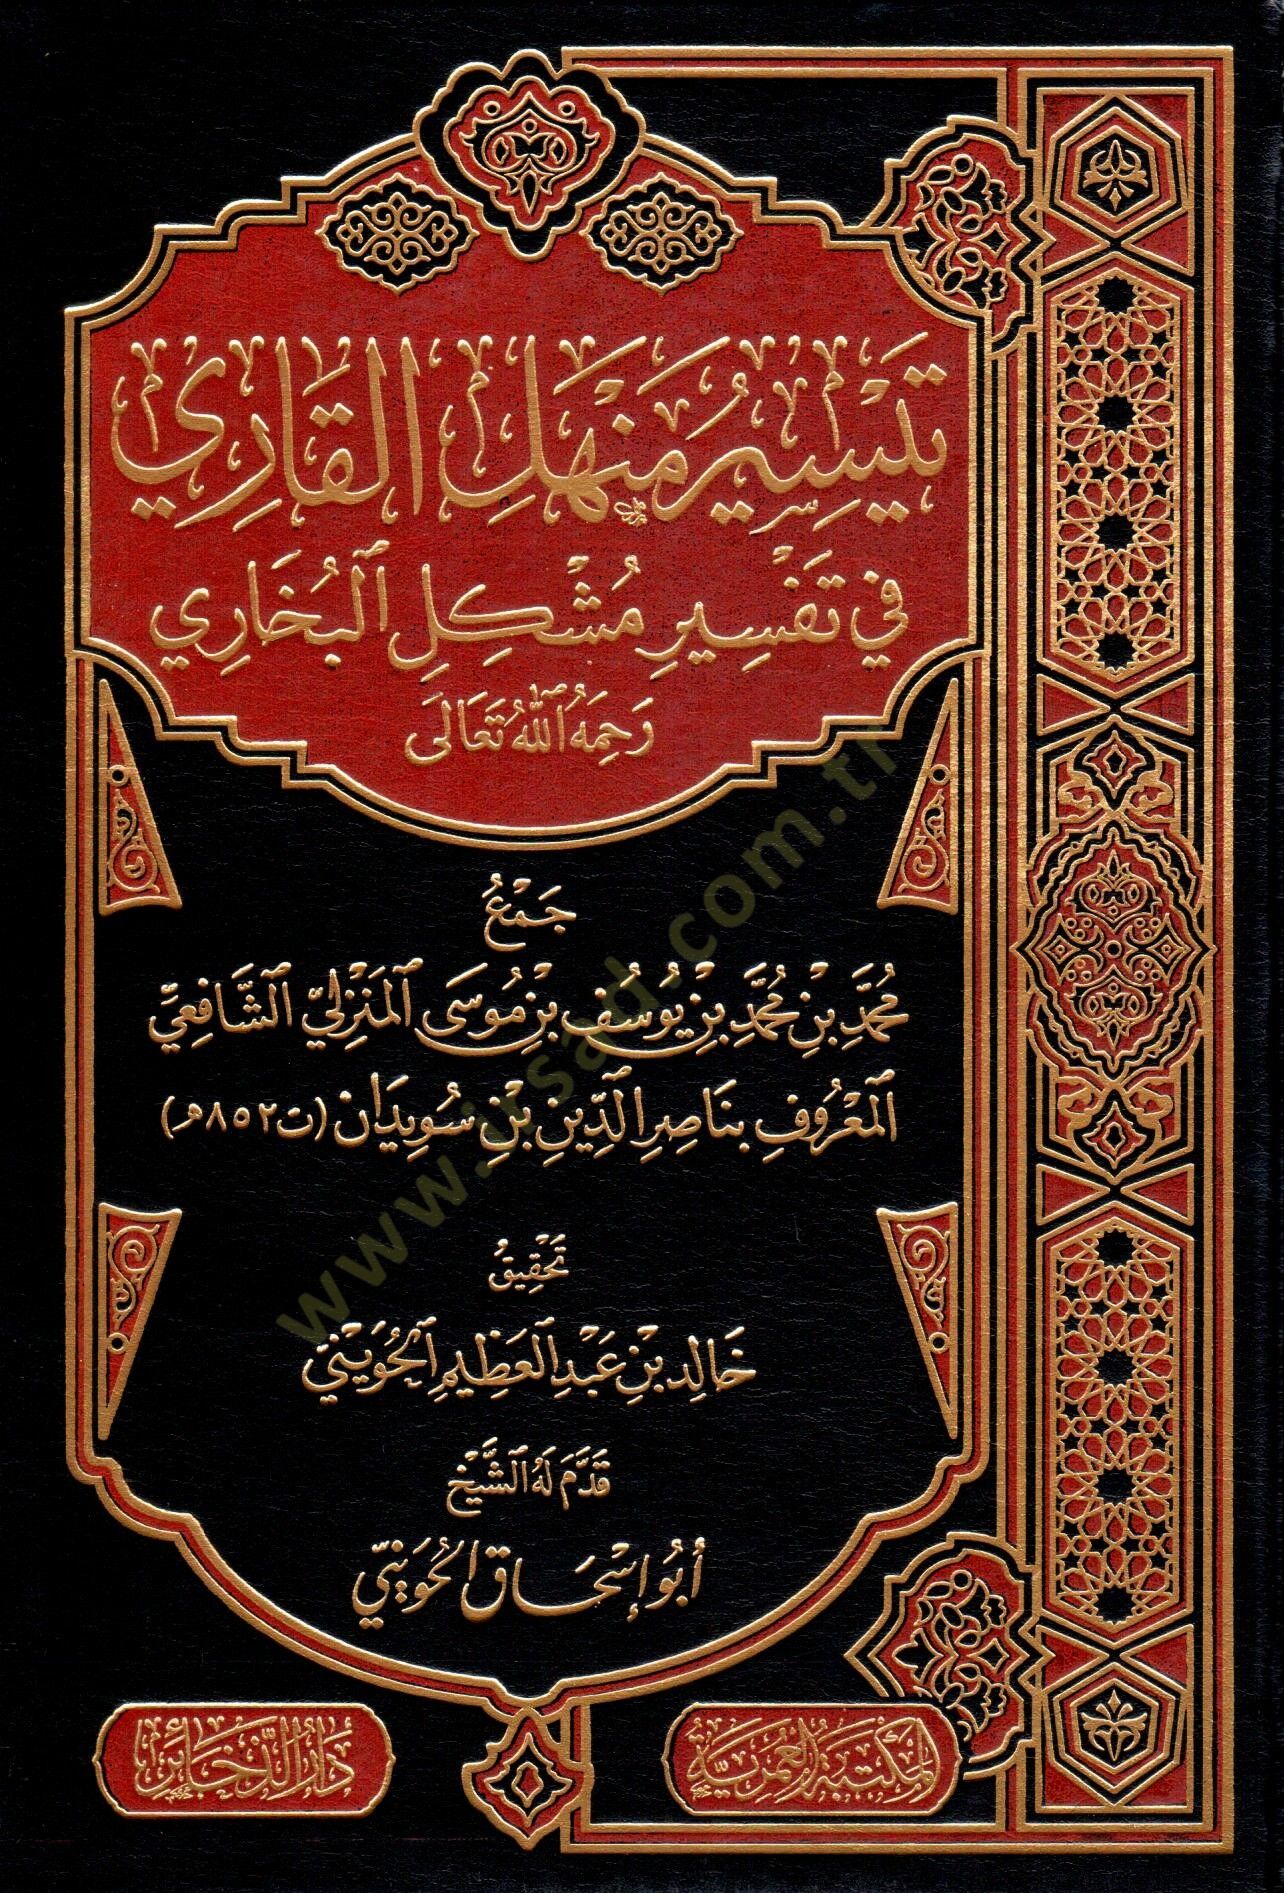 تَيْسِيرُ مَنْهَلِ القَارِي
فِي تَفْسِيرِ مُشْكِلِ البُخَارِي
رَحِمَهُ اللَّهُ تَعَالَى
جَمْعُ
مُحَمَّدِ بْنِ مُحَمَّدِ بْنِ يُوسُفَ بْنِ مُوسَى المَنْزِلِيِّ الشَّافِعِيِّ
المَعْرُوفِ بِنَاصِرِ الدِّينِ بْنِ سُوَيْدَان (ت٨٥٢هـ)
تَحْقِيقُ
خَالِدِ بْنِ عَبْدِ العَظِيمِ الحُوَيْنِيِّ
قَدَّمَ لَهُ الشَّيْخ
أَبُو إِسْحَاق الحُوَيْنِيّ
المكتبة العُمَرِيَّة
دَارُ الذَّخَائِر
www.irsad.com.tr